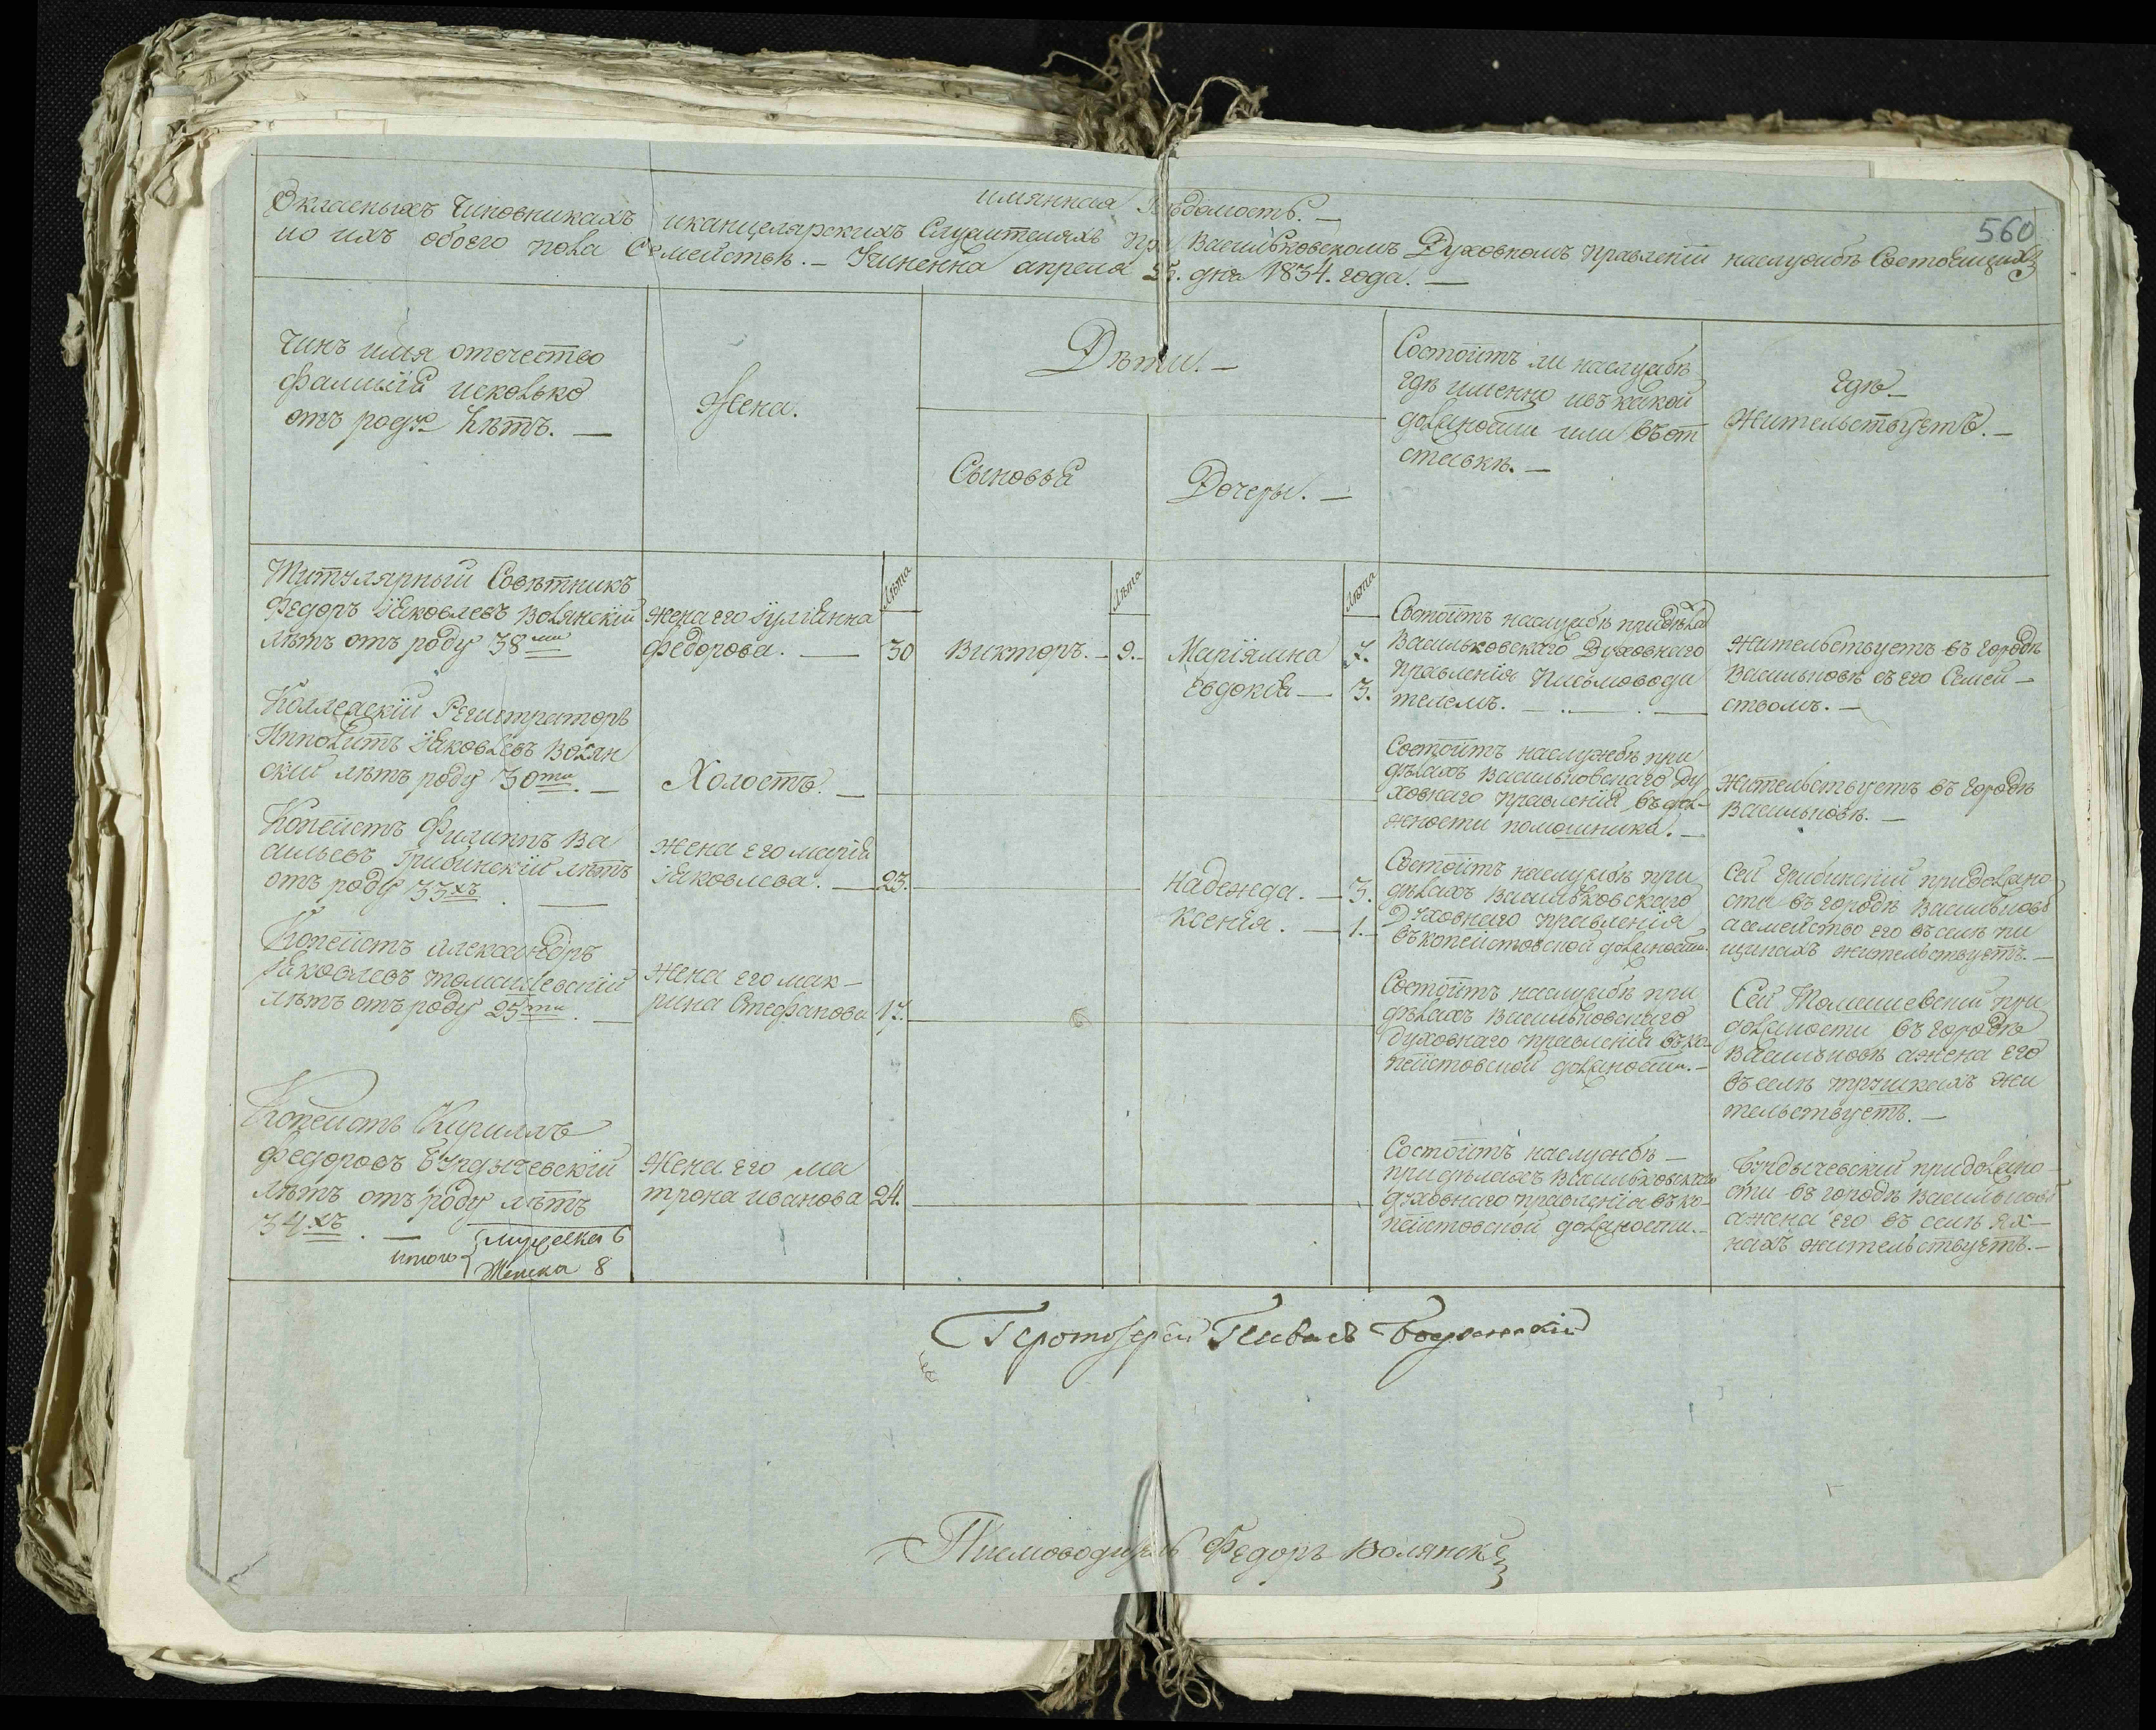 560
имянная Вѣдомость. —
Окласныхъ Чиновникахъ иканцелярскихъ Служителяхъ при Васильковскомъ Духовномъ Правленіи наслужбѣ Состоящихъ
ио ихъ обоего пола Семействѣ. — Учиненна апреля дня 1834. года. —
Чинъ имя отечество
фамилія исколько
отъ роду Лѣтъ. —
Жена.
Дѣти. —
Сыновья
Дочеры. —
Состоитъ ли наслужбѣ
гдѣ именно ивъкакой
должности или въот
ставкѣ. —
Гдѣ —
Жительствуетъ. —
Лѣта
Лѣта
Лѣта
Титулярный Совѣтникъ
Федоръ Іаковлевъ Волянскій
лѣтъ отъ роду 38ми
жена его Іуліянна
федорова. — 30
Викторъ. — 9. —
Маріямна 7.
Евдокія — 3.
Состоитъ наслужбѣ придѣлахъ
Васильковскаго Духовнаго
Правленія Письмоводи
телемъ. —
Жительствуетъ въ городѣ
Васильковѣ съ его Семей —
ствомъ. —
Коллежскій Регистраторъ
Ипполитъ Іаковлевъ Волян
скій лѣтъ роду 30ти. —
Холостъ. —
Состоитъ наслужбѣ при
дѣлахъ Васильковскаго Ду
ховнаго правленія въ дол-
жности помошника. —
Жительствуетъ въ городѣ
Васильковѣ. —
Копеистъ Филиппъ Ва
сильевъ Грибинскій лѣтъ
отъ роду 33хъ. —
жена его марія
Іаковлева. — 23.
Надежда. — 3.
Ксенія. — 1. —
Состоитъ наслужбѣ при
дѣлахъ Васильковскаго
Духовнаго правленія
въкопеистовской должности.
Сей Грибинскій придолжно
сти въ городѣ Васильковѣ
асемейство его въселѣ пи
щикахъ жительствуетъ. —
Копеистъ Александръ
Іаковлевъ томашевскій
лѣтъ отъ роду 25ти. —
Жена его мак —
рина Стефанова 17.
Состоитъ наслужбѣ при
дѣлахъ Васильковскаго
Духовнаго правленія въко-
пеистовской должности. —
Сей Томашевскій при
должности въ городѣ
Васильковѣ ажена его
въселѣ трушкахъ жи
тельствуетъ. —
Копеистъ Кириллъ
Федоровъ Бундычевскій
лѣтъ отъ роду лѣтъ
34хъ. —
Жена его ма
трона иванова 24.
Состоитъ наслужбѣ —
придѣлахъ Васильковскаго
духовнаго правленія въко-
пеистовской должности. —
Бундычевскій придолжно-
сти въ городѣ Васильковѣ
ажена его въ селѣ Ях —
нахъ жительствуетъ. —
итого
Мужеска 6
Женска 8
Протоіерей Павелъ
Письмоводитель Федоръ Волянскій